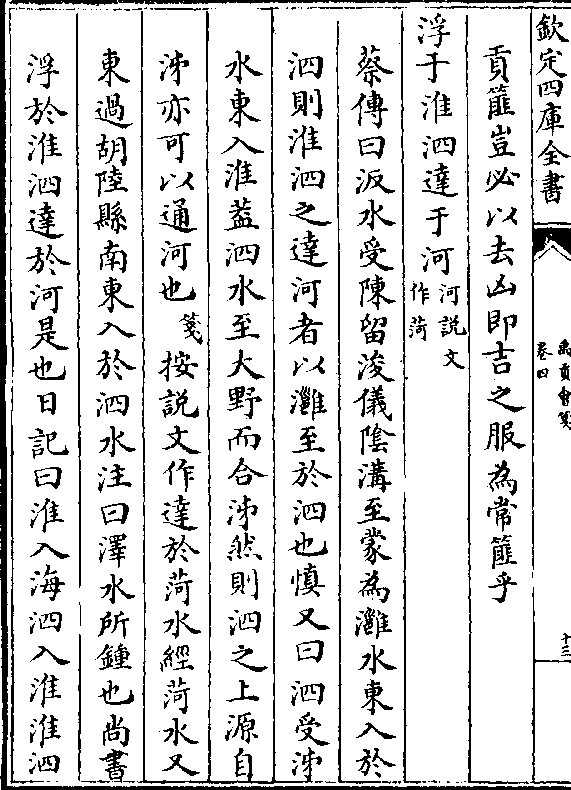 欽定四庫全書
禹貢會箋
卷四
十三
貢篚豈必以去凶即吉之服為常篚乎
浮于淮泗達于河河說文作菏
蔡傳曰汳水受陳留浚儀陰溝至蒙為灉水東入於
泗則淮泗之達河者以灉至於泗也慎又曰泗受泲
水東入淮葢泗水至大野而合泲然則泗之上源自
泲亦可以通河也箋按説文作達於菏水經菏水又
東過胡陸縣南東入於泗水注曰澤水所鍾也尚書
浮於淮泗達於河是也日記曰淮入海泗入淮淮泗